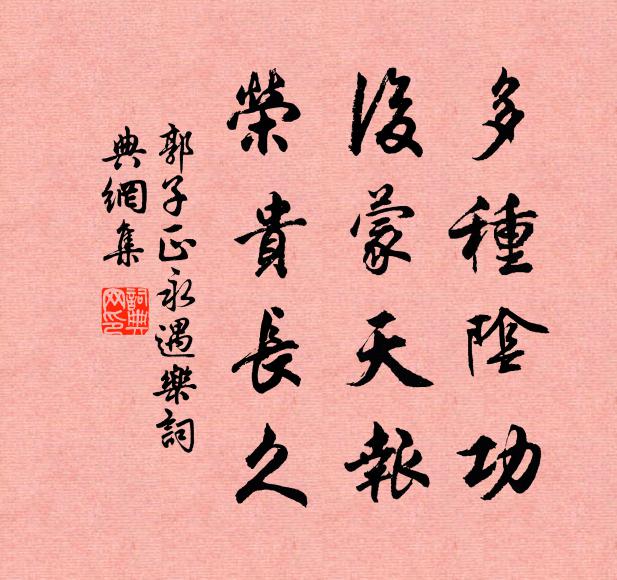 多種陰功
後蒙天報
榮貴長久
郭子正永遇樂詞
典網集
詞典
网印